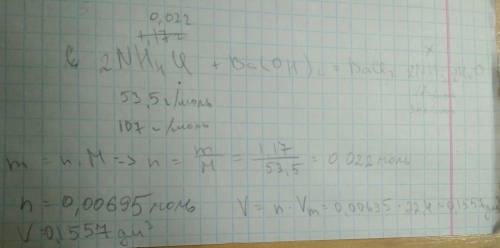 0,022
1,17
2NH₄Cl + Ba(OH)₂ = BaCl₂
53,5 г/моль
107 г/моль
m = n · M => n = m/M = 1,17/53,5 = 0,022 моль
n = 0,00695 моль V = n · Vm = 0,00695 · 22,4 = 0,1557 дм³
V = 0,1557 дм³